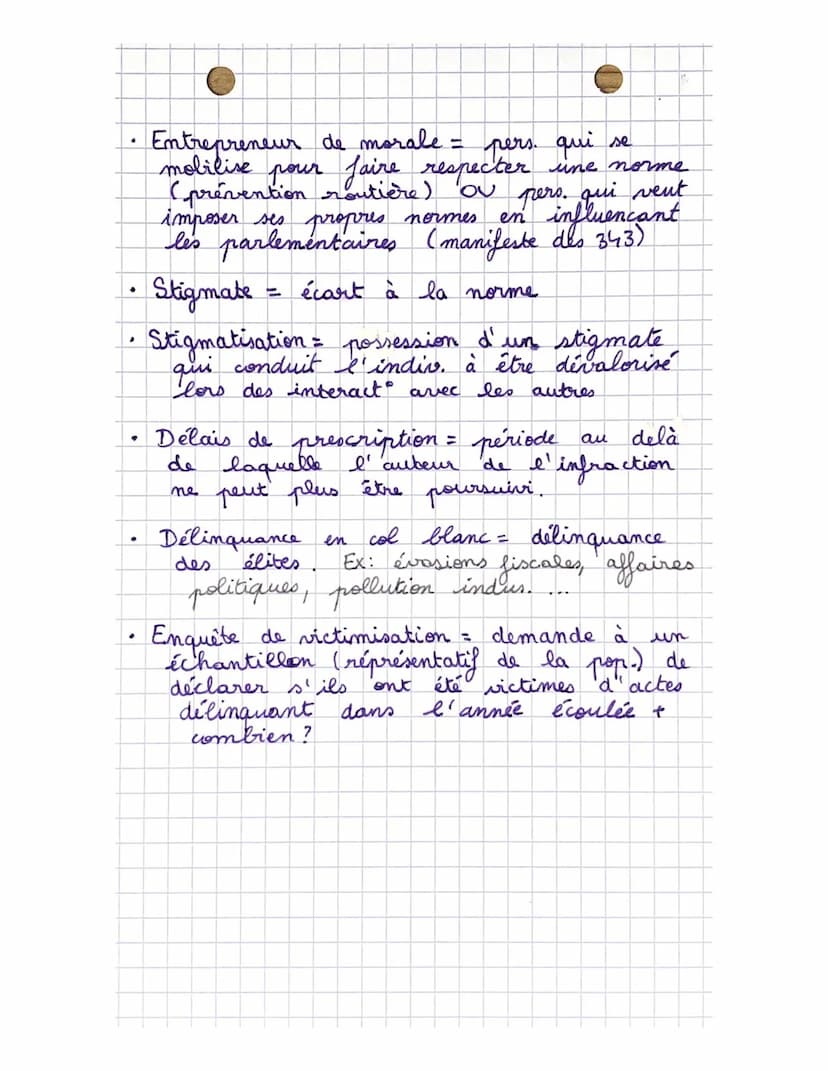 • Entrepreneur de morale = pers. qui se
mobilise pour faire respecter une norme
(prévention routière) OU pers. qui veut
imposer ses propres normes en influençant
les parlementaires (manifeste des 343)
• Stigmate = écart à la norme
• Stigmatisation = possession d'un stigmate
qui conduit l'indiv. à être dévalorisé
lors des interact° avec les autres
• Délais de prescription = période au delà
de laquelle l'auteur de l'infraction
ne peut plus être poursuivi.
• Délinquance en col blanc = délinquance
des élites. Ex: évasions fiscales, affaires
politiques, pollution indus. ...
• Enquête de victimisation = demande à un
échantillon (réprésentatif de la pop.) de
déclarer s'ils ont été victimes d'actes
délinquant dans l'année écoulée +
combien ?